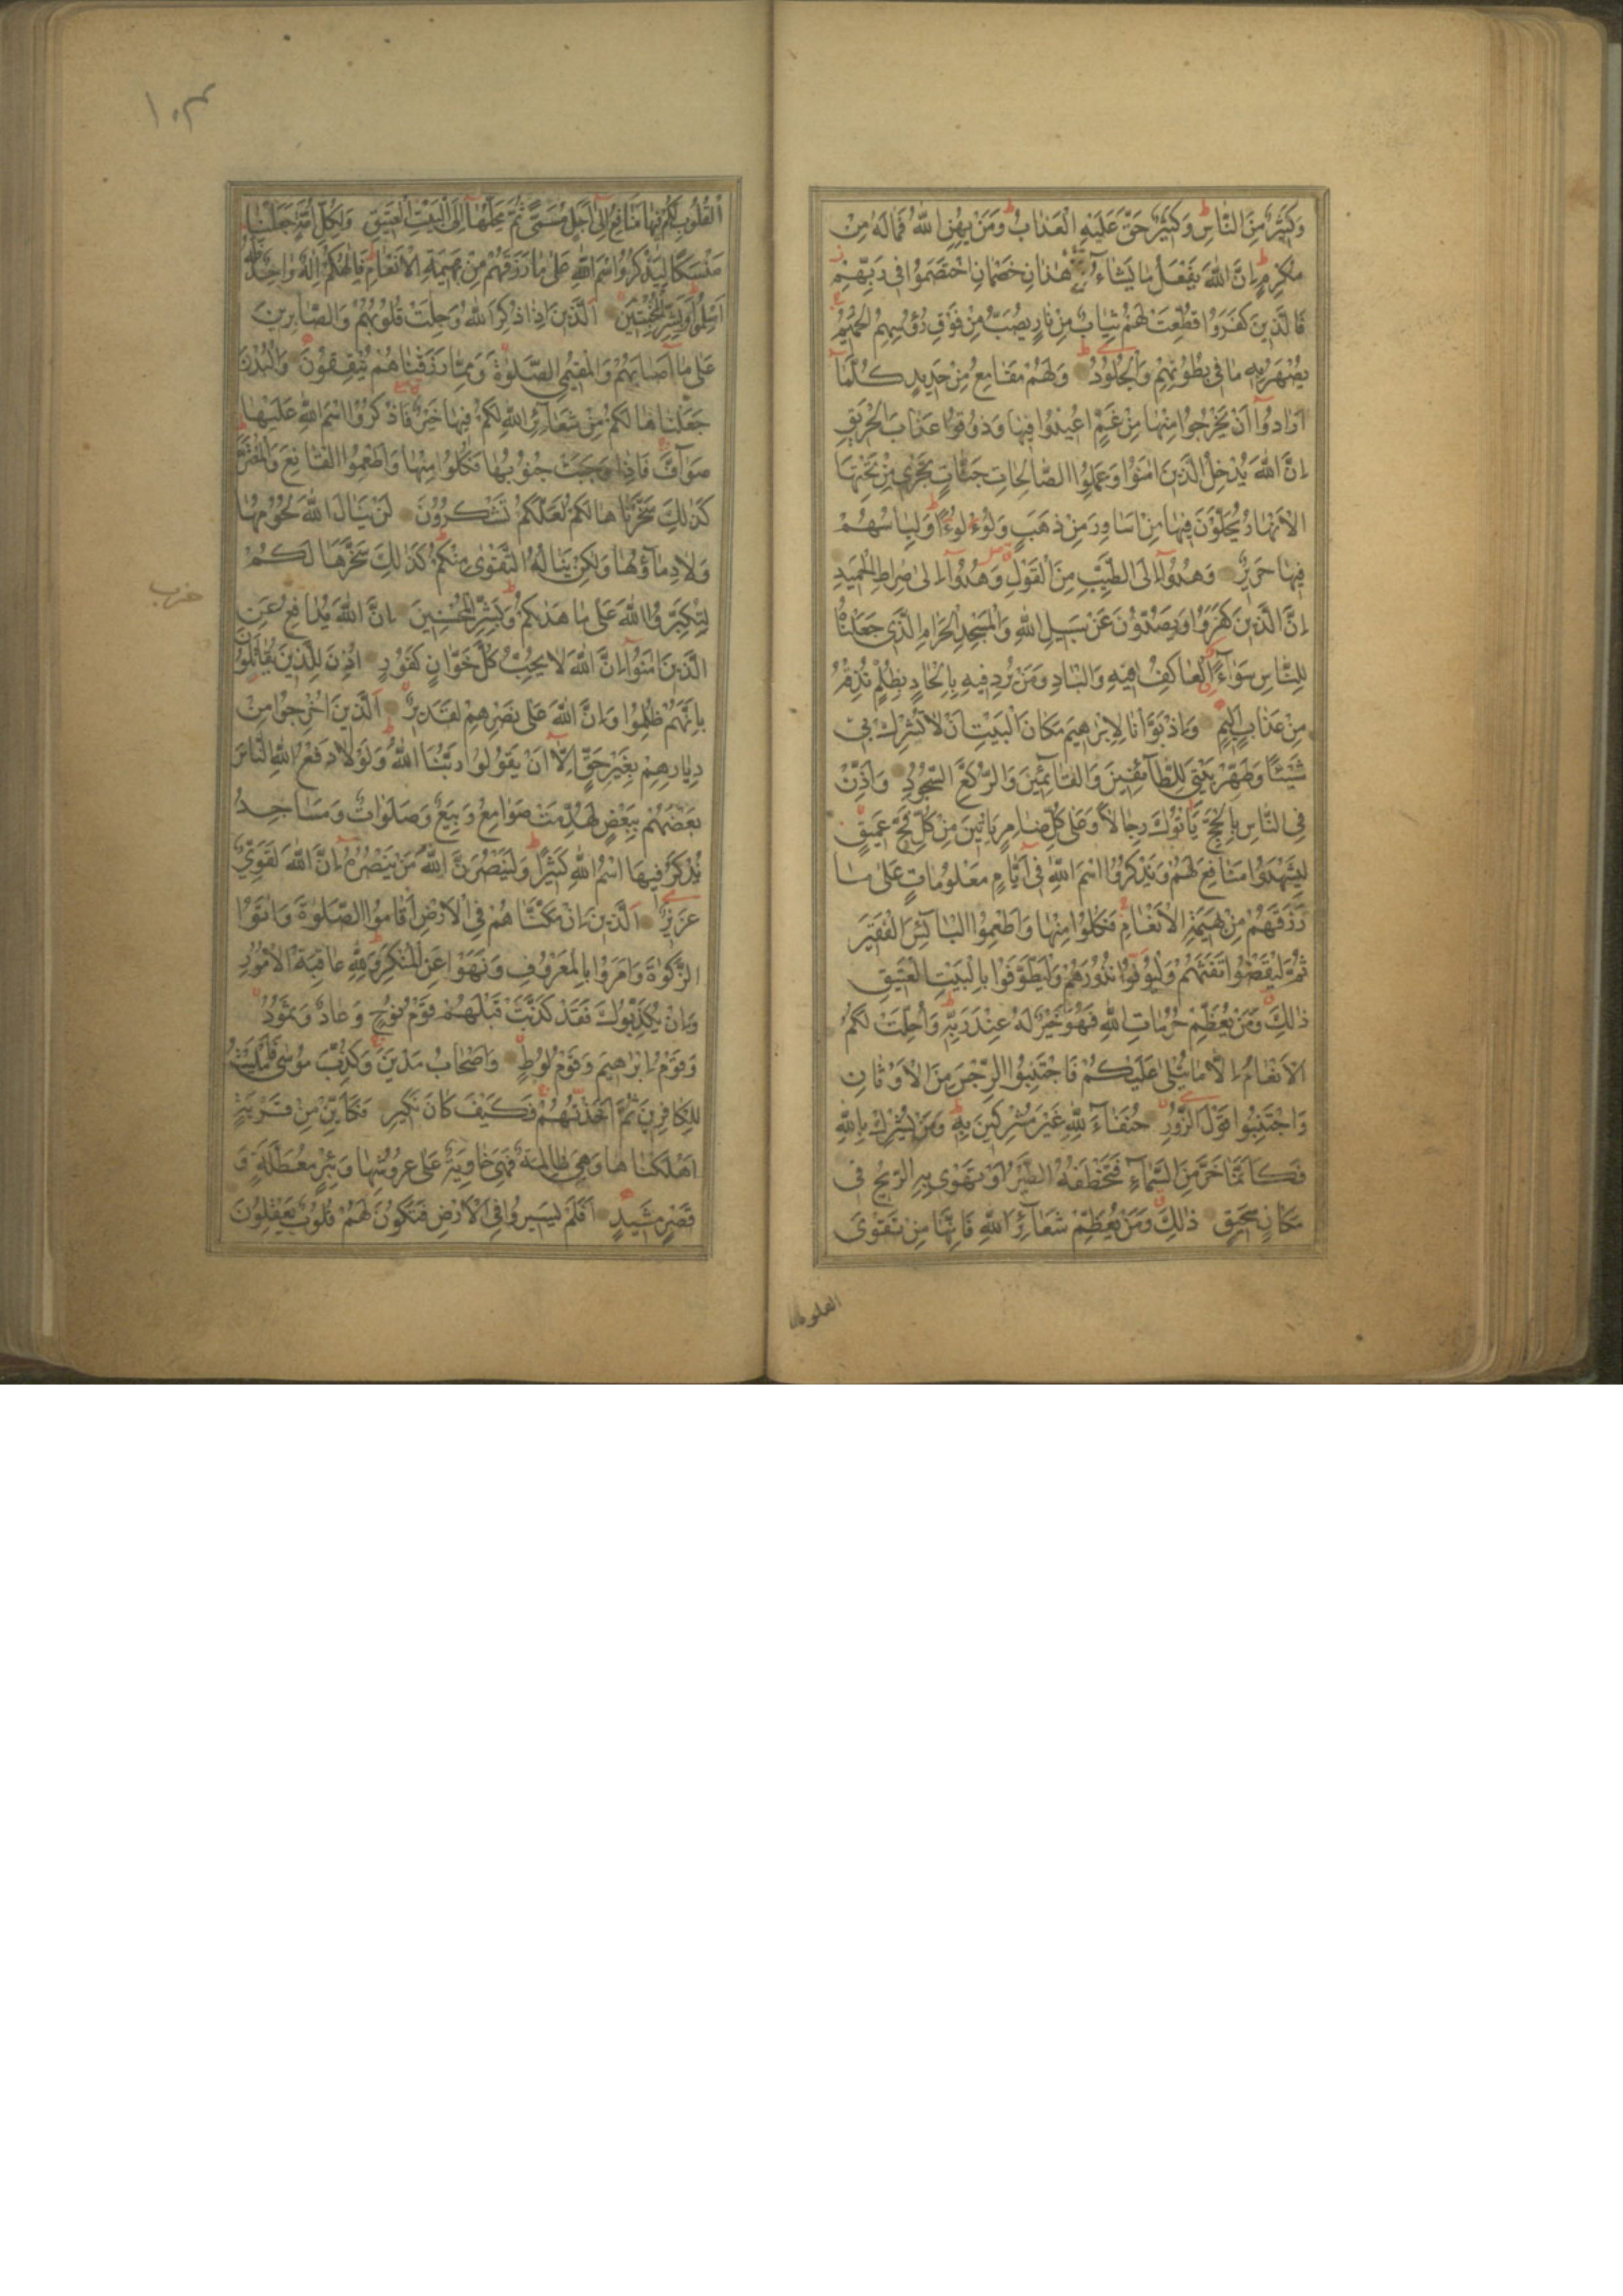 وَكَثِيرٌ مِنَ النَّاسِ وَكَثِيرٌ حَقَّ عَلَيْهِ الْعَذَابُ وَمَنْ يُهِنِ اللّٰهُ فَمَا لَهُ مِنْ
مُكْرِمٍ اِنَّ اللّٰهَ يَفْعَلُ مَا يَشَاءُ هٰذَانِ خَصْمَانِ اخْتَصَمُوا فِي رَبِّهِمْ
فَالَّذِينَ كَفَرُوا قُطِّعَتْ لَهُمْ ثِيَابٌ مِنْ نَارٍ يُصَبُّ مِنْ فَوْقِ رُؤُسِهِمُ الْحَمِيمُ
يُصْهَرُ بِهِ مَا فِي بُطُونِهِمْ وَالْجُلُودُ وَلَهُمْ مَقَامِعُ مِنْ حَدِيدٍ كُلَّمَا
اَرَادُوا اَنْ يَخْرُجُوا مِنْهَا مِنْ غَمٍّ اُعِيدُوا فِيهَا وَذُوقُوا عَذَابَ الْحَرِيقِ
اِنَّ اللّٰهَ يُدْخِلُ الَّذِينَ اٰمَنُوا وَعَمِلُوا الصَّالِحَاتِ جَنَّاتٍ تَجْرِي مِنْ تَحْتِهَا
الْاَنْهَارُ يُحَلَّوْنَ فِيهَا مِنْ اَسَاوِرَ مِنْ ذَهَبٍ وَلُؤْلُؤًا وَلِبَاسُهُمْ
فِيهَا حَرِيرٌ وَهُدُوا اِلَى الطَّيِّبِ مِنَ الْقَوْلِ وَهُدُوا اِلٰى صِرَاطِ الْحَمِيدِ
اِنَّ الَّذِينَ كَفَرُوا وَيَصُدُّونَ عَنْ سَبِيلِ اللّٰهِ وَالْمَسْجِدِ الْحَرَامِ الَّذِي جَعَلْنَاهُ
لِلنَّاسِ سَوَاءً الْعَاكِفُ فِيهِ وَالْبَادِ وَمَنْ يُرِدْ فِيهِ بِاِلْحَادٍ بِظُلْمٍ نُذِقْهُ
مِنْ عَذَابٍ اَلِيمٍ وَاِذْ بَوَّأْنَا لِاِبْرٰهِيمَ مَكَانَ الْبَيْتِ اَنْ لَا تُشْرِكْ بِي
شَيْئًا وَطَهِّرْ بَيْتِيَ لِلطَّائِفِينَ وَالْقَائِمِينَ وَالرُّكَّعِ السُّجُودِ وَاَذِّنْ
فِي النَّاسِ بِالْحَجِّ يَأْتُوكَ رِجَالًا وَعَلٰى كُلِّ ضَامِرٍ يَأْتِينَ مِنْ كُلِّ فَجٍّ عَمِيقٍ
لِيَشْهَدُوا مَنَافِعَ لَهُمْ وَيَذْكُرُوا اسْمَ اللّٰهِ فِي اَيَّامٍ مَعْلُومَاتٍ عَلٰى مَا
رَزَقَهُمْ مِنْ بَهِيمَةِ الْاَنْعَامِ فَكُلُوا مِنْهَا وَاَطْعِمُوا الْبَائِسَ الْفَقِيرَ
ثُمَّ لْيَقْضُوا تَفَثَهُمْ وَلْيُوفُوا نُذُورَهُمْ وَلْيَطَّوَّفُوا بِالْبَيْتِ الْعَتِيقِ
ذٰلِكَ وَمَنْ يُعَظِّمْ حُرُمَاتِ اللّٰهِ فَهُوَ خَيْرٌ لَهُ عِنْدَ رَبِّهِ وَاُحِلَّتْ لَكُمُ
الْاَنْعَامُ اِلَّا مَا يُتْلٰى عَلَيْكُمْ فَاجْتَنِبُوا الرِّجْسَ مِنَ الْاَوْثَانِ
وَاجْتَنِبُوا قَوْلَ الزُّورِ حُنَفَاءَ لِلّٰهِ غَيْرَ مُشْرِكِينَ بِهِ وَمَنْ يُشْرِكْ بِاللّٰهِ
فَكَاَنَّمَا خَرَّ مِنَ السَّمَاءِ فَتَخْطَفُهُ الطَّيْرُ اَوْ تَهْوِي بِهِ الرِّيحُ فِي
مَكَانٍ سَحِيقٍ ذٰلِكَ وَمَنْ يُعَظِّمْ شَعَائِرَ اللّٰهِ فَاِنَّهَا مِنْ تَقْوَى
القلوب
١٠٣
الْقُلُوبِ لَكُمْ فِيهَا مَنَافِعُ اِلٰى اَجَلٍ مُسَمًّى ثُمَّ مَحِلُّهَا اِلَى الْبَيْتِ الْعَتِيقِ وَلِكُلِّ اُمَّةٍ جَعَلْنَا
مَنْسَكًا لِيَذْكُرُوا اسْمَ اللّٰهِ عَلٰى مَا رَزَقَهُمْ مِنْ بَهِيمَةِ الْاَنْعَامِ فَاِلٰهُكُمْ اِلٰهٌ وَاحِدٌ فَلَهُ
اَسْلِمُوا وَبَشِّرِ الْمُخْبِتِينَ اَلَّذِينَ اِذَا ذُكِرَ اللّٰهُ وَجِلَتْ قُلُوبُهُمْ وَالصَّابِرِينَ
عَلٰى مَا اَصَابَهُمْ وَالْمُقِيمِي الصَّلٰوةِ وَمِمَّا رَزَقْنَاهُمْ يُنْفِقُونَ وَالْبُدْنَ
جَعَلْنَاهَا لَكُمْ مِنْ شَعَائِرِ اللّٰهِ لَكُمْ فِيهَا خَيْرٌ فَاذْكُرُوا اسْمَ اللّٰهِ عَلَيْهَا
صَوَافَّ فَاِذَا وَجَبَتْ جُنُوبُهَا فَكُلُوا مِنْهَا وَاَطْعِمُوا الْقَانِعَ وَالْمُعْتَرَّ
كَذٰلِكَ سَخَّرْنَاهَا لَكُمْ لَعَلَّكُمْ تَشْكُرُونَ لَنْ يَنَالَ اللّٰهَ لُحُومُهَا
وَلَا دِمَاؤُهَا وَلٰكِنْ يَنَالُهُ التَّقْوٰى مِنْكُمْ كَذٰلِكَ سَخَّرَهَا لَكُمْ
لِتُكَبِّرُوا اللّٰهَ عَلٰى مَا هَدٰيكُمْ وَبَشِّرِ الْمُحْسِنِينَ اِنَّ اللّٰهَ يُدَافِعُ عَنِ
حزب
الَّذِينَ اٰمَنُوا اِنَّ اللّٰهَ لَا يُحِبُّ كُلَّ خَوَّانٍ كَفُورٍ اُذِنَ لِلَّذِينَ يُقَاتَلُونَ
بِاَنَّهُمْ ظُلِمُوا وَاِنَّ اللّٰهَ عَلٰى نَصْرِهِمْ لَقَدِيرٌ اَلَّذِينَ اُخْرِجُوا مِنْ
دِيَارِهِمْ بِغَيْرِ حَقٍّ اِلَّا اَنْ يَقُولُوا رَبُّنَا اللّٰهُ وَلَوْلَا دَفْعُ اللّٰهِ النَّاسَ
بَعْضَهُمْ بِبَعْضٍ لَهُدِّمَتْ صَوَامِعُ وَبِيَعٌ وَصَلَوَاتٌ وَمَسَاجِدُ
يُذْكَرُ فِيهَا اسْمُ اللّٰهِ كَثِيرًا وَلَيَنْصُرَنَّ اللّٰهُ مَنْ يَنْصُرُهُ اِنَّ اللّٰهَ لَقَوِيٌّ
عَزِيزٌ اَلَّذِينَ اِنْ مَكَّنَّاهُمْ فِي الْاَرْضِ اَقَامُوا الصَّلٰوةَ وَاٰتَوُا
الزَّكٰوةَ وَاَمَرُوا بِالْمَعْرُوفِ وَنَهَوْا عَنِ الْمُنْكَرِ وَلِلّٰهِ عَاقِبَةُ الْاُمُورِ
وَاِنْ يُكَذِّبُوكَ فَقَدْ كَذَّبَتْ قَبْلَهُمْ قَوْمُ نُوحٍ وَعَادٌ وَثَمُودُ
وَقَوْمُ اِبْرٰهِيمَ وَقَوْمُ لُوطٍ وَاَصْحَابُ مَدْيَنَ وَكُذِّبَ مُوسٰى فَاَمْلَيْتُ
لِلْكَافِرِينَ ثُمَّ اَخَذْتُهُمْ فَكَيْفَ كَانَ نَكِيرِ فَكَاَيِّنْ مِنْ قَرْيَةٍ
اَهْلَكْنَاهَا وَهِيَ ظَالِمَةٌ فَهِيَ خَاوِيَةٌ عَلٰى عُرُوشِهَا وَبِئْرٍ مُعَطَّلَةٍ وَ
قَصْرٍ مَشِيدٍ اَفَلَمْ يَسِيرُوا فِي الْاَرْضِ فَتَكُونَ لَهُمْ قُلُوبٌ يَعْقِلُونَ